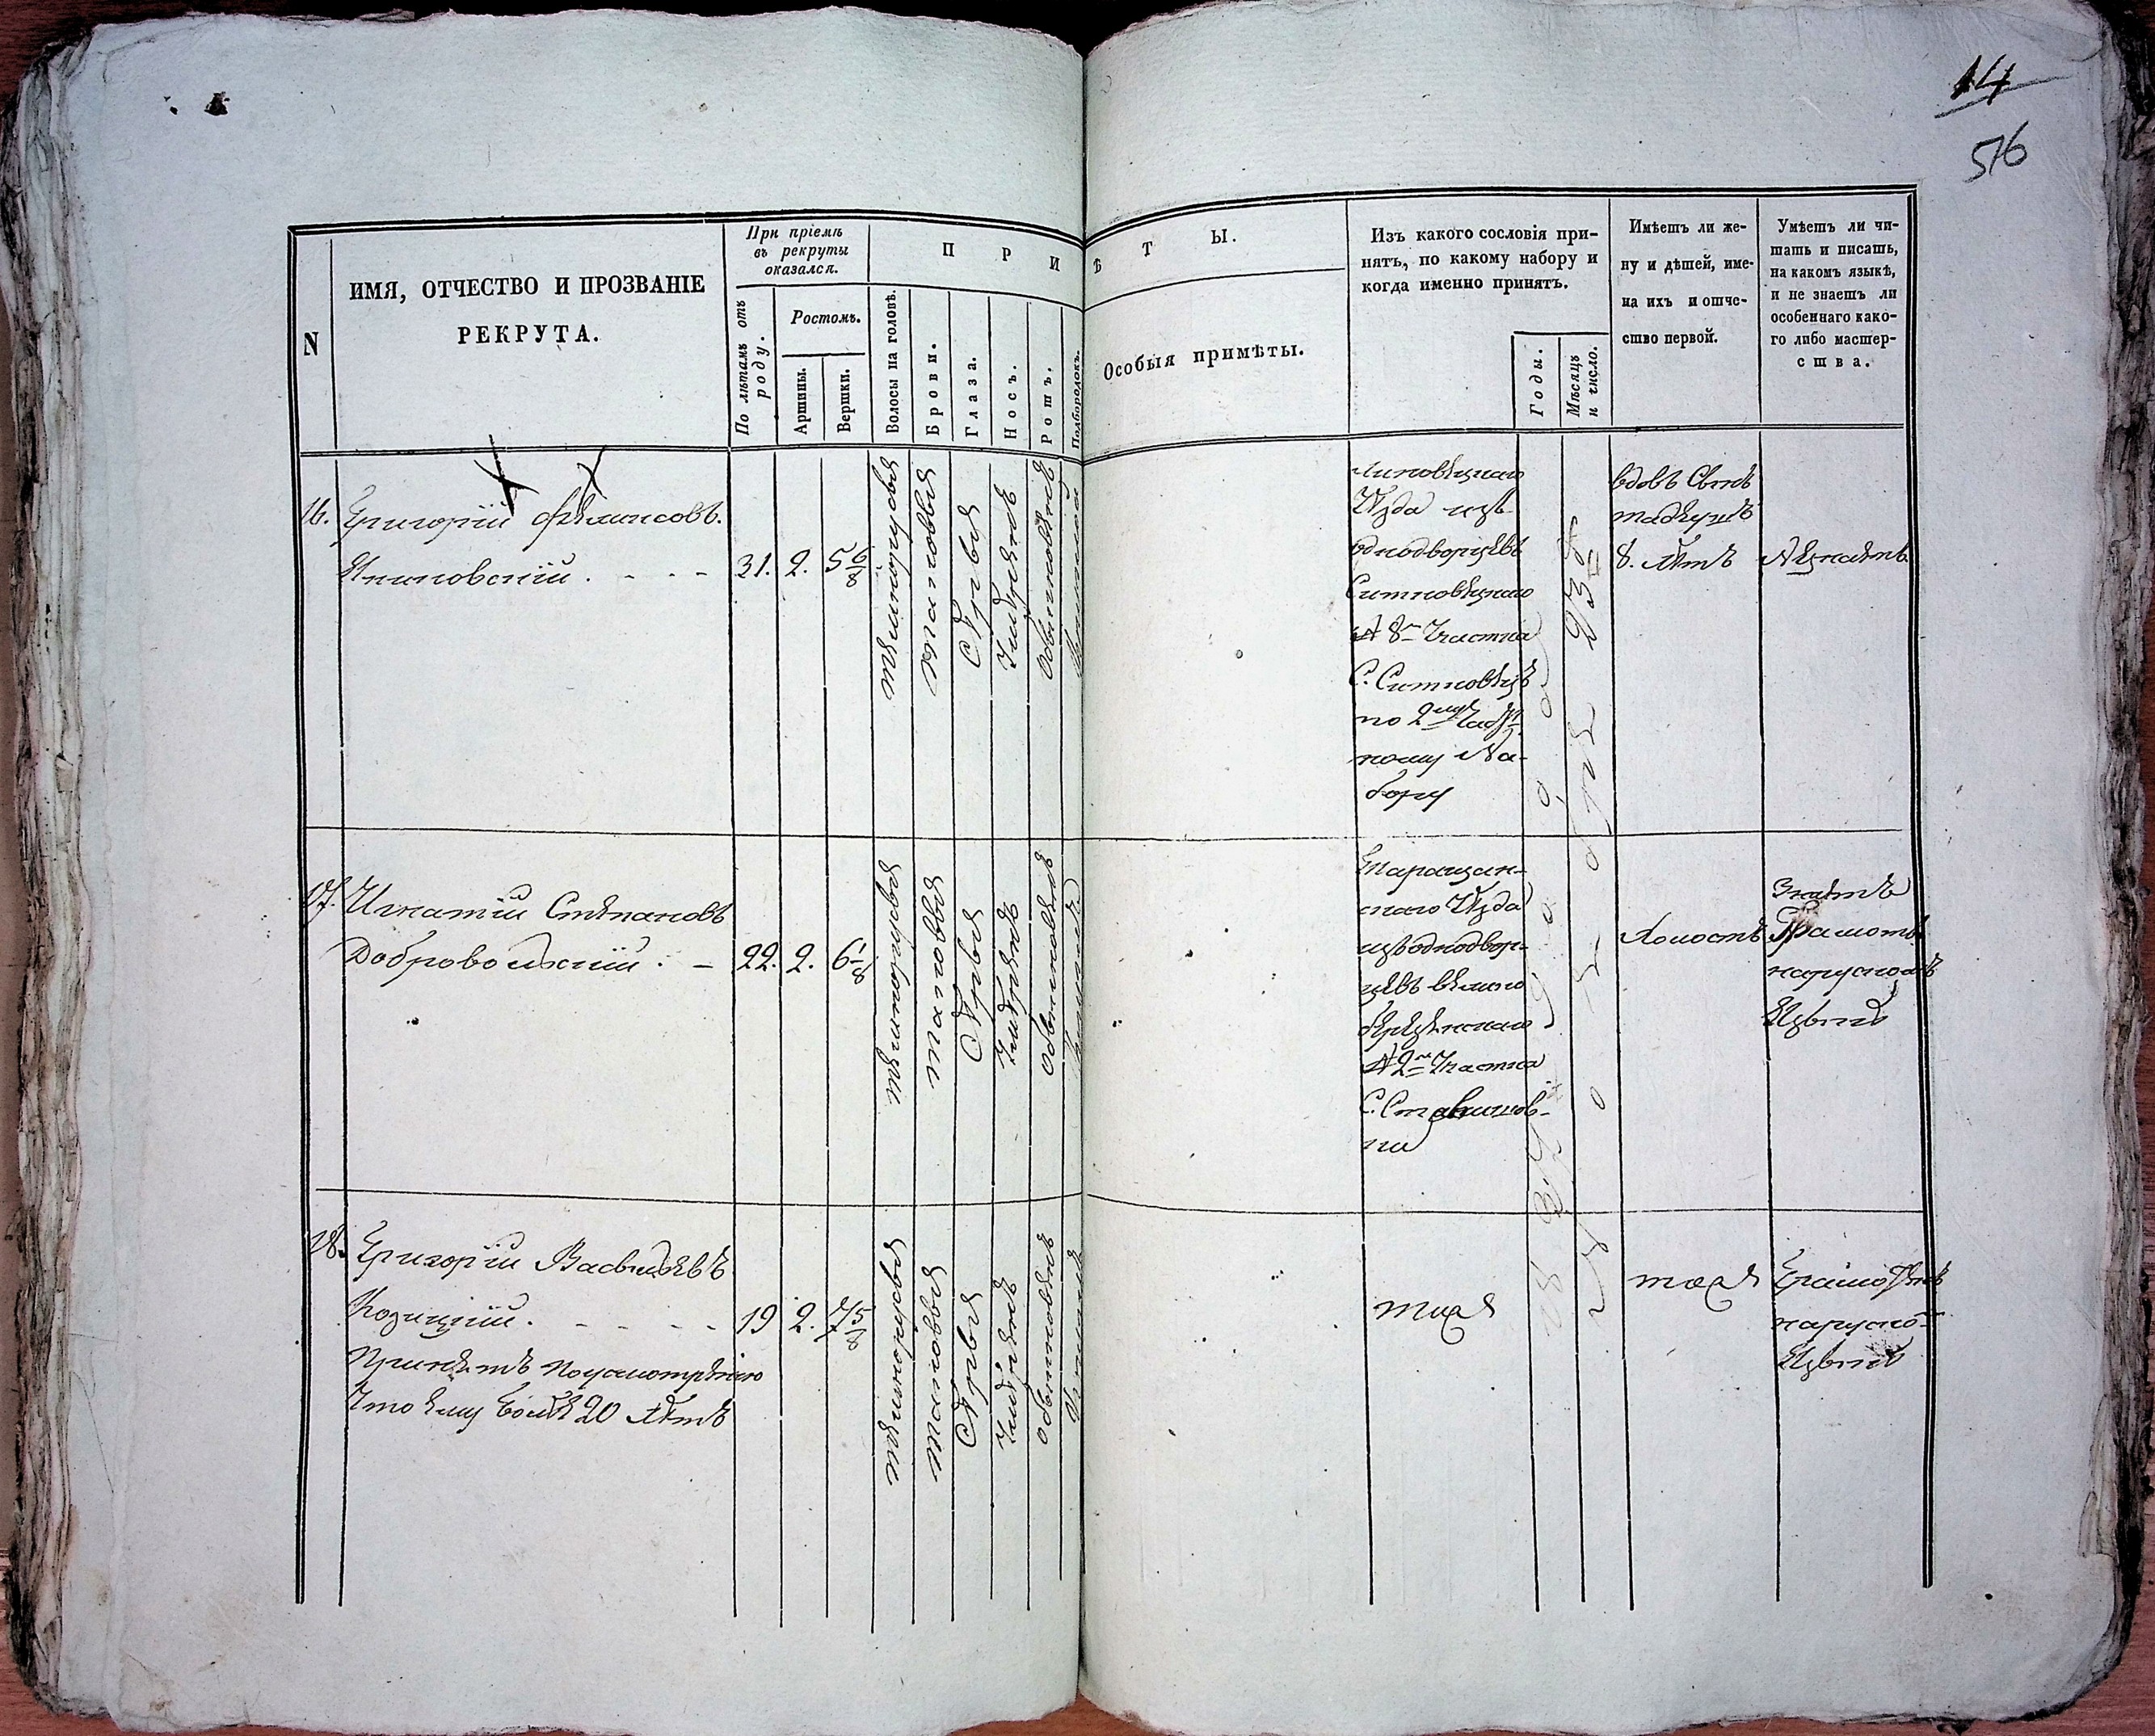 14
516
N
ИМЯ, ОТЧЕСТВО И ПРОЗВАНІЕ
РЕКРУТА.
При пріемѣ
въ рекруты
оказался.
По лѣтамъ отъ
роду.
Ростомъ.
Аршины.
Вершки.
П Р И
Волосы на головѣ.
Брови.
Глаза.
Носъ.
Ротъ.
Подбородокъ.
Ѣ Т Ы.
Особыя примѣты.
Изъ какого сословія при-
нятъ, по какому набору и
когда именно принятъ.
Годы.
Мѣсяцъ
и число.
Имѣетъ ли же-
ну и дѣтей, име-
на ихъ и отче-
ство первой.
Умѣетъ ли чи-
тать и писать,
на какомъ языкѣ,
и не знаетъ ли
особеннаго како-
го либо мастер-
ства.
16.
Григорій Феликсовъ
Липовскій
31.
2.
5 6/8
темнорусыя
таковыя
Сѣрыя
Умѣренъ
обыкновенъ
Липовецкаго
Уѣзда изъ
однодворцевъ
Ситковецкаго
№ 8го Участка
С. Ситковецъ
по 2му Част-
ному На-
бору
вдовъ
8. лѣтъ
Незнаетъ
17.
Игнатій Степановъ
Добровольскій
22.
2.
6 1/8
темнорусыя
таковыя
Сѣрыя
Умѣренъ
обыкновенъ
Таращан-
скаго Уѣзда
изъ однодвор-
цевъ
№ 2го Участка
С.
Холостъ
Знаетъ
Грамоту
на рускомъ
языкѣ
18.
Григорій Васильевъ
Козицкій
Принятъ по усмотренію
что ему болѣе 20 лѣтъ
19
2.
7 5/8
темнорусыя
таковыя
Сѣрыя
Умѣренъ
обыкновенъ
тожъ
тожъ
Грамотенъ
на руском
языкѣ